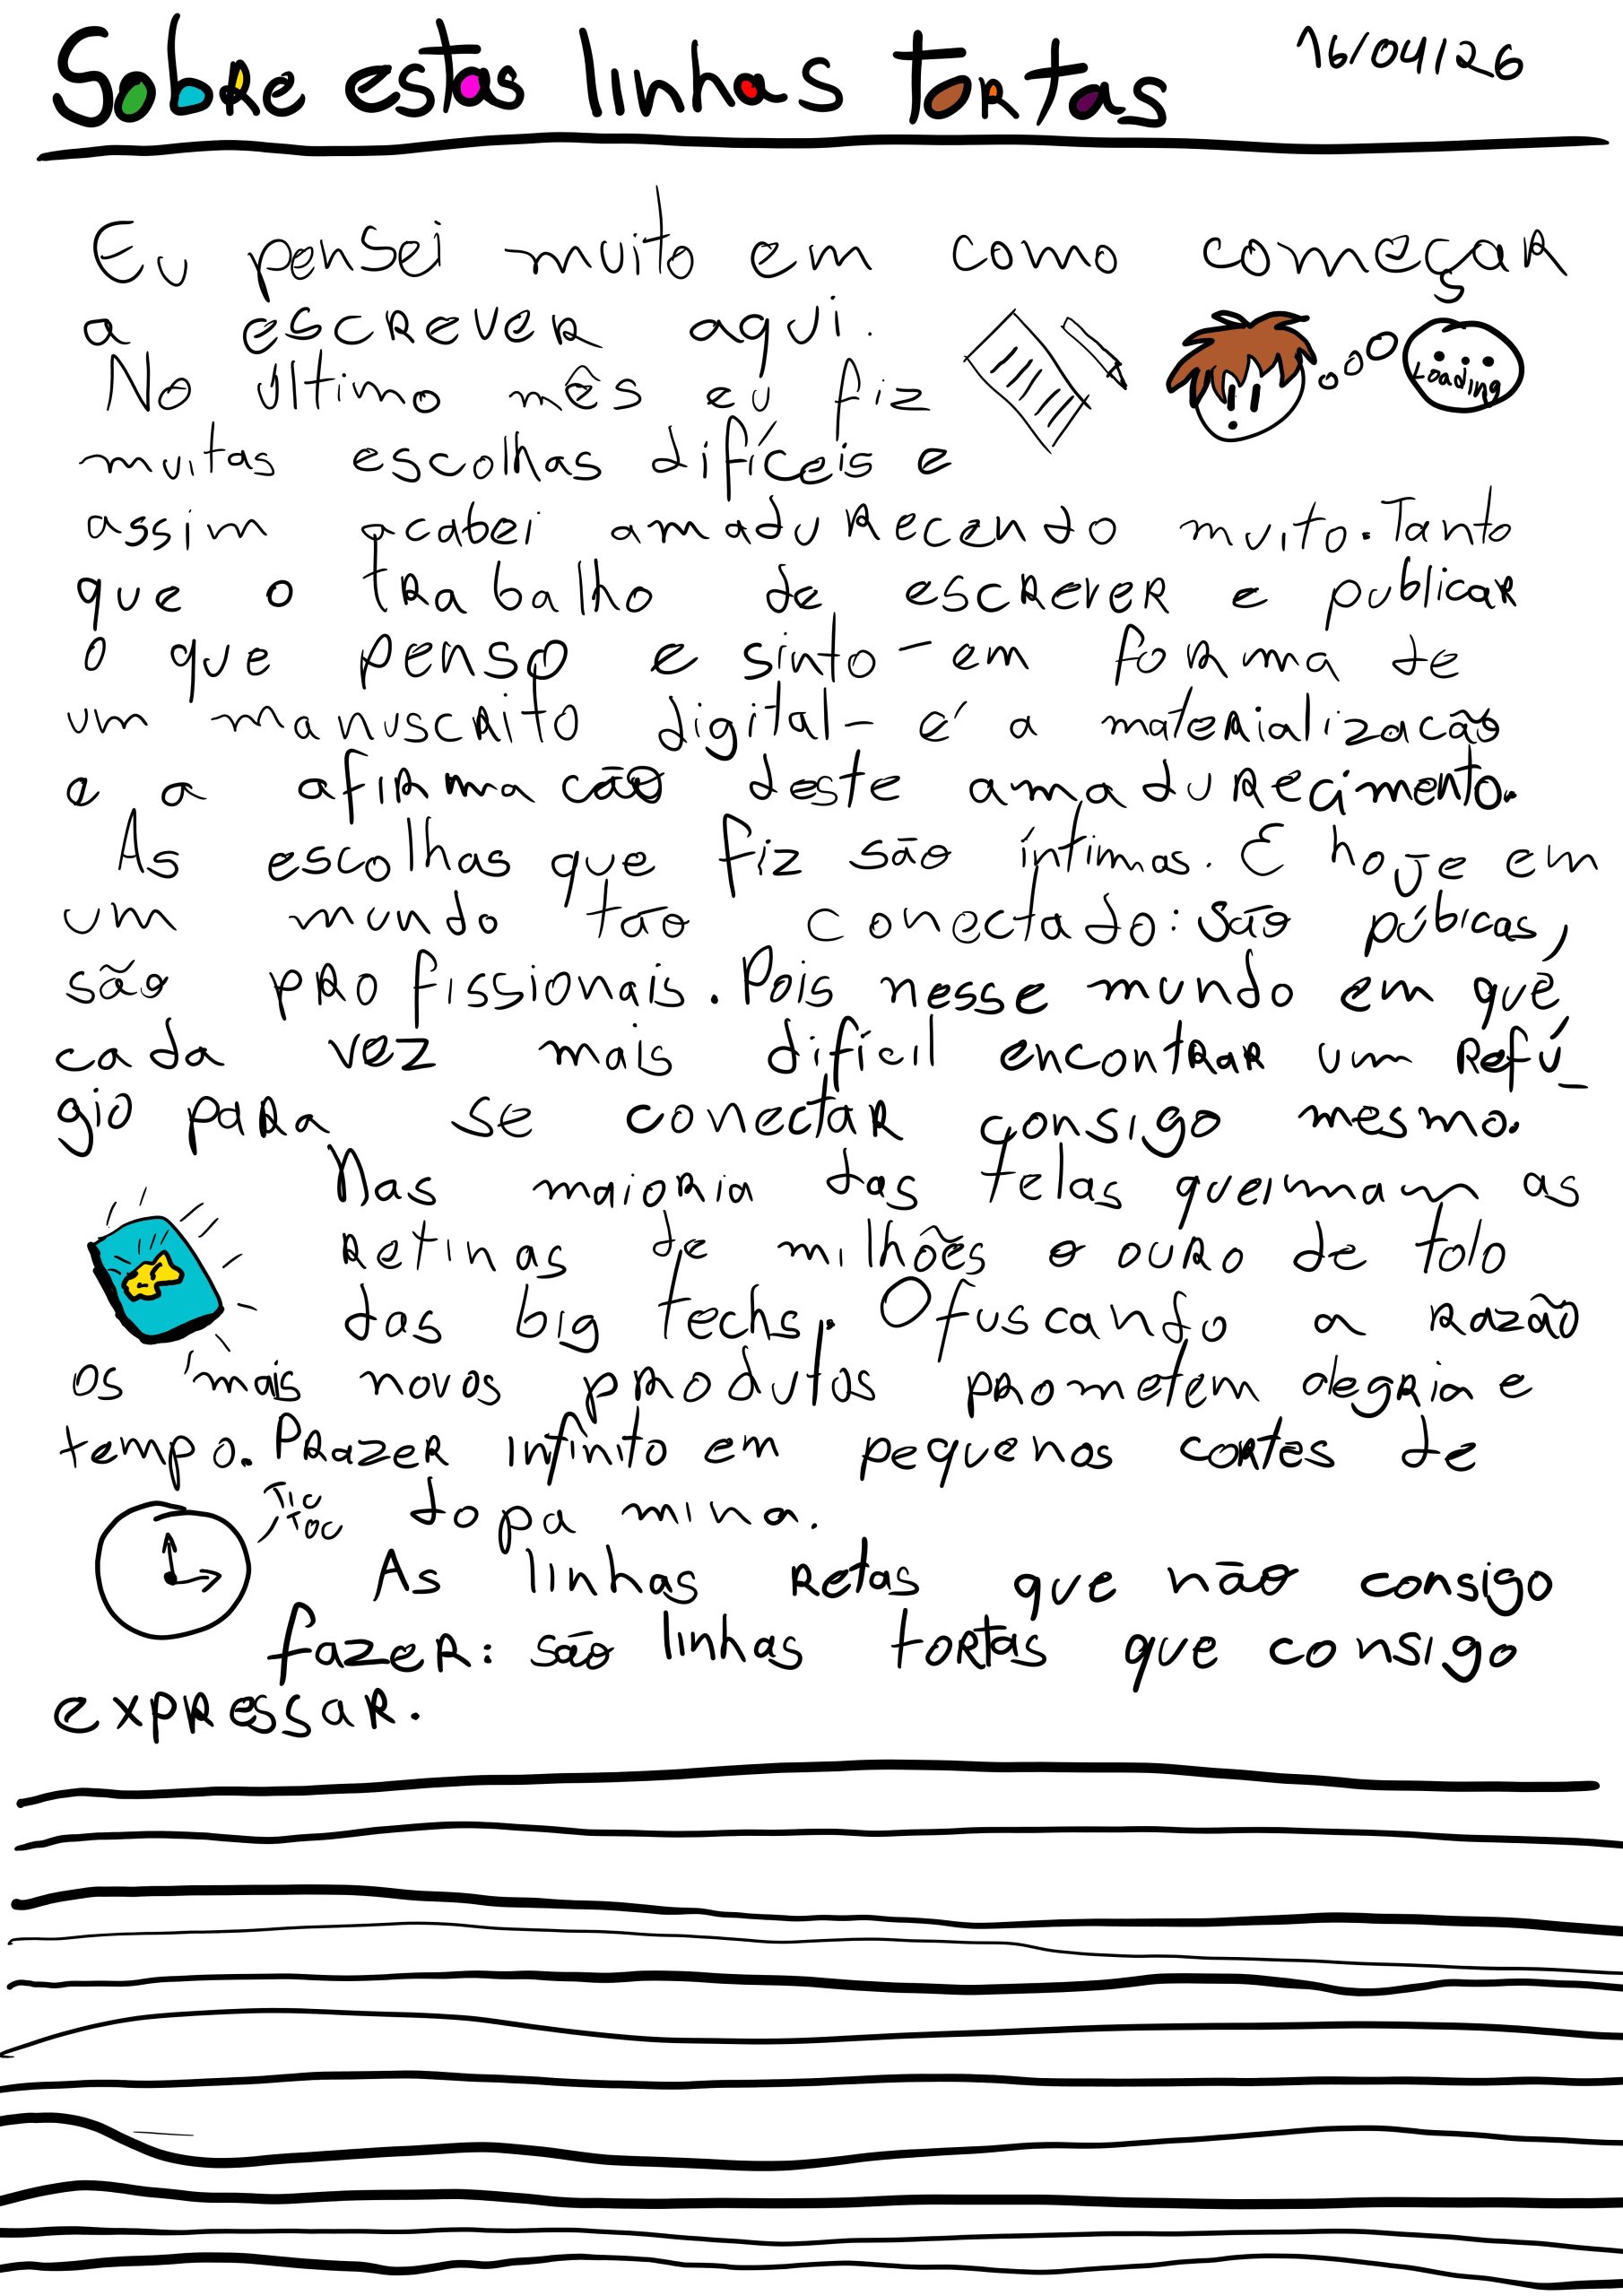 Sobre estas linhas tortas
16/04/26
Eu pensei muito em como começar
a escrever aqui.
Loading
No último mês eu fiz
muitas escolhas difíceis e
assim acabei amadurecendo muito. Tanto
que o trabalho de escrever e publicar
o que penso e sinto - em forma de
um manuscrito digital - é a materialização
e a afirmação deste amadurecimento.
As escolhas que fiz são íntimas. E hoje em
um mundo tão conectado: são púbicas,
são profissionais. Pois nesse mundo em que
cada vez mais difícil encontrar um refú_
gio para se conectar consigo mesmo.
Nas maioria das telas queimam as
retinas de milhões o ouro de tolo
das big techs. Ofuscando a razão
os mais novos produtos prometem alegria e
tempo. Prazer infinto em pequenos cortes de
Tic
Toc
dopamina.
As linhas retas que não consigo
fazer: são linhas tortas que consigo
expressar.